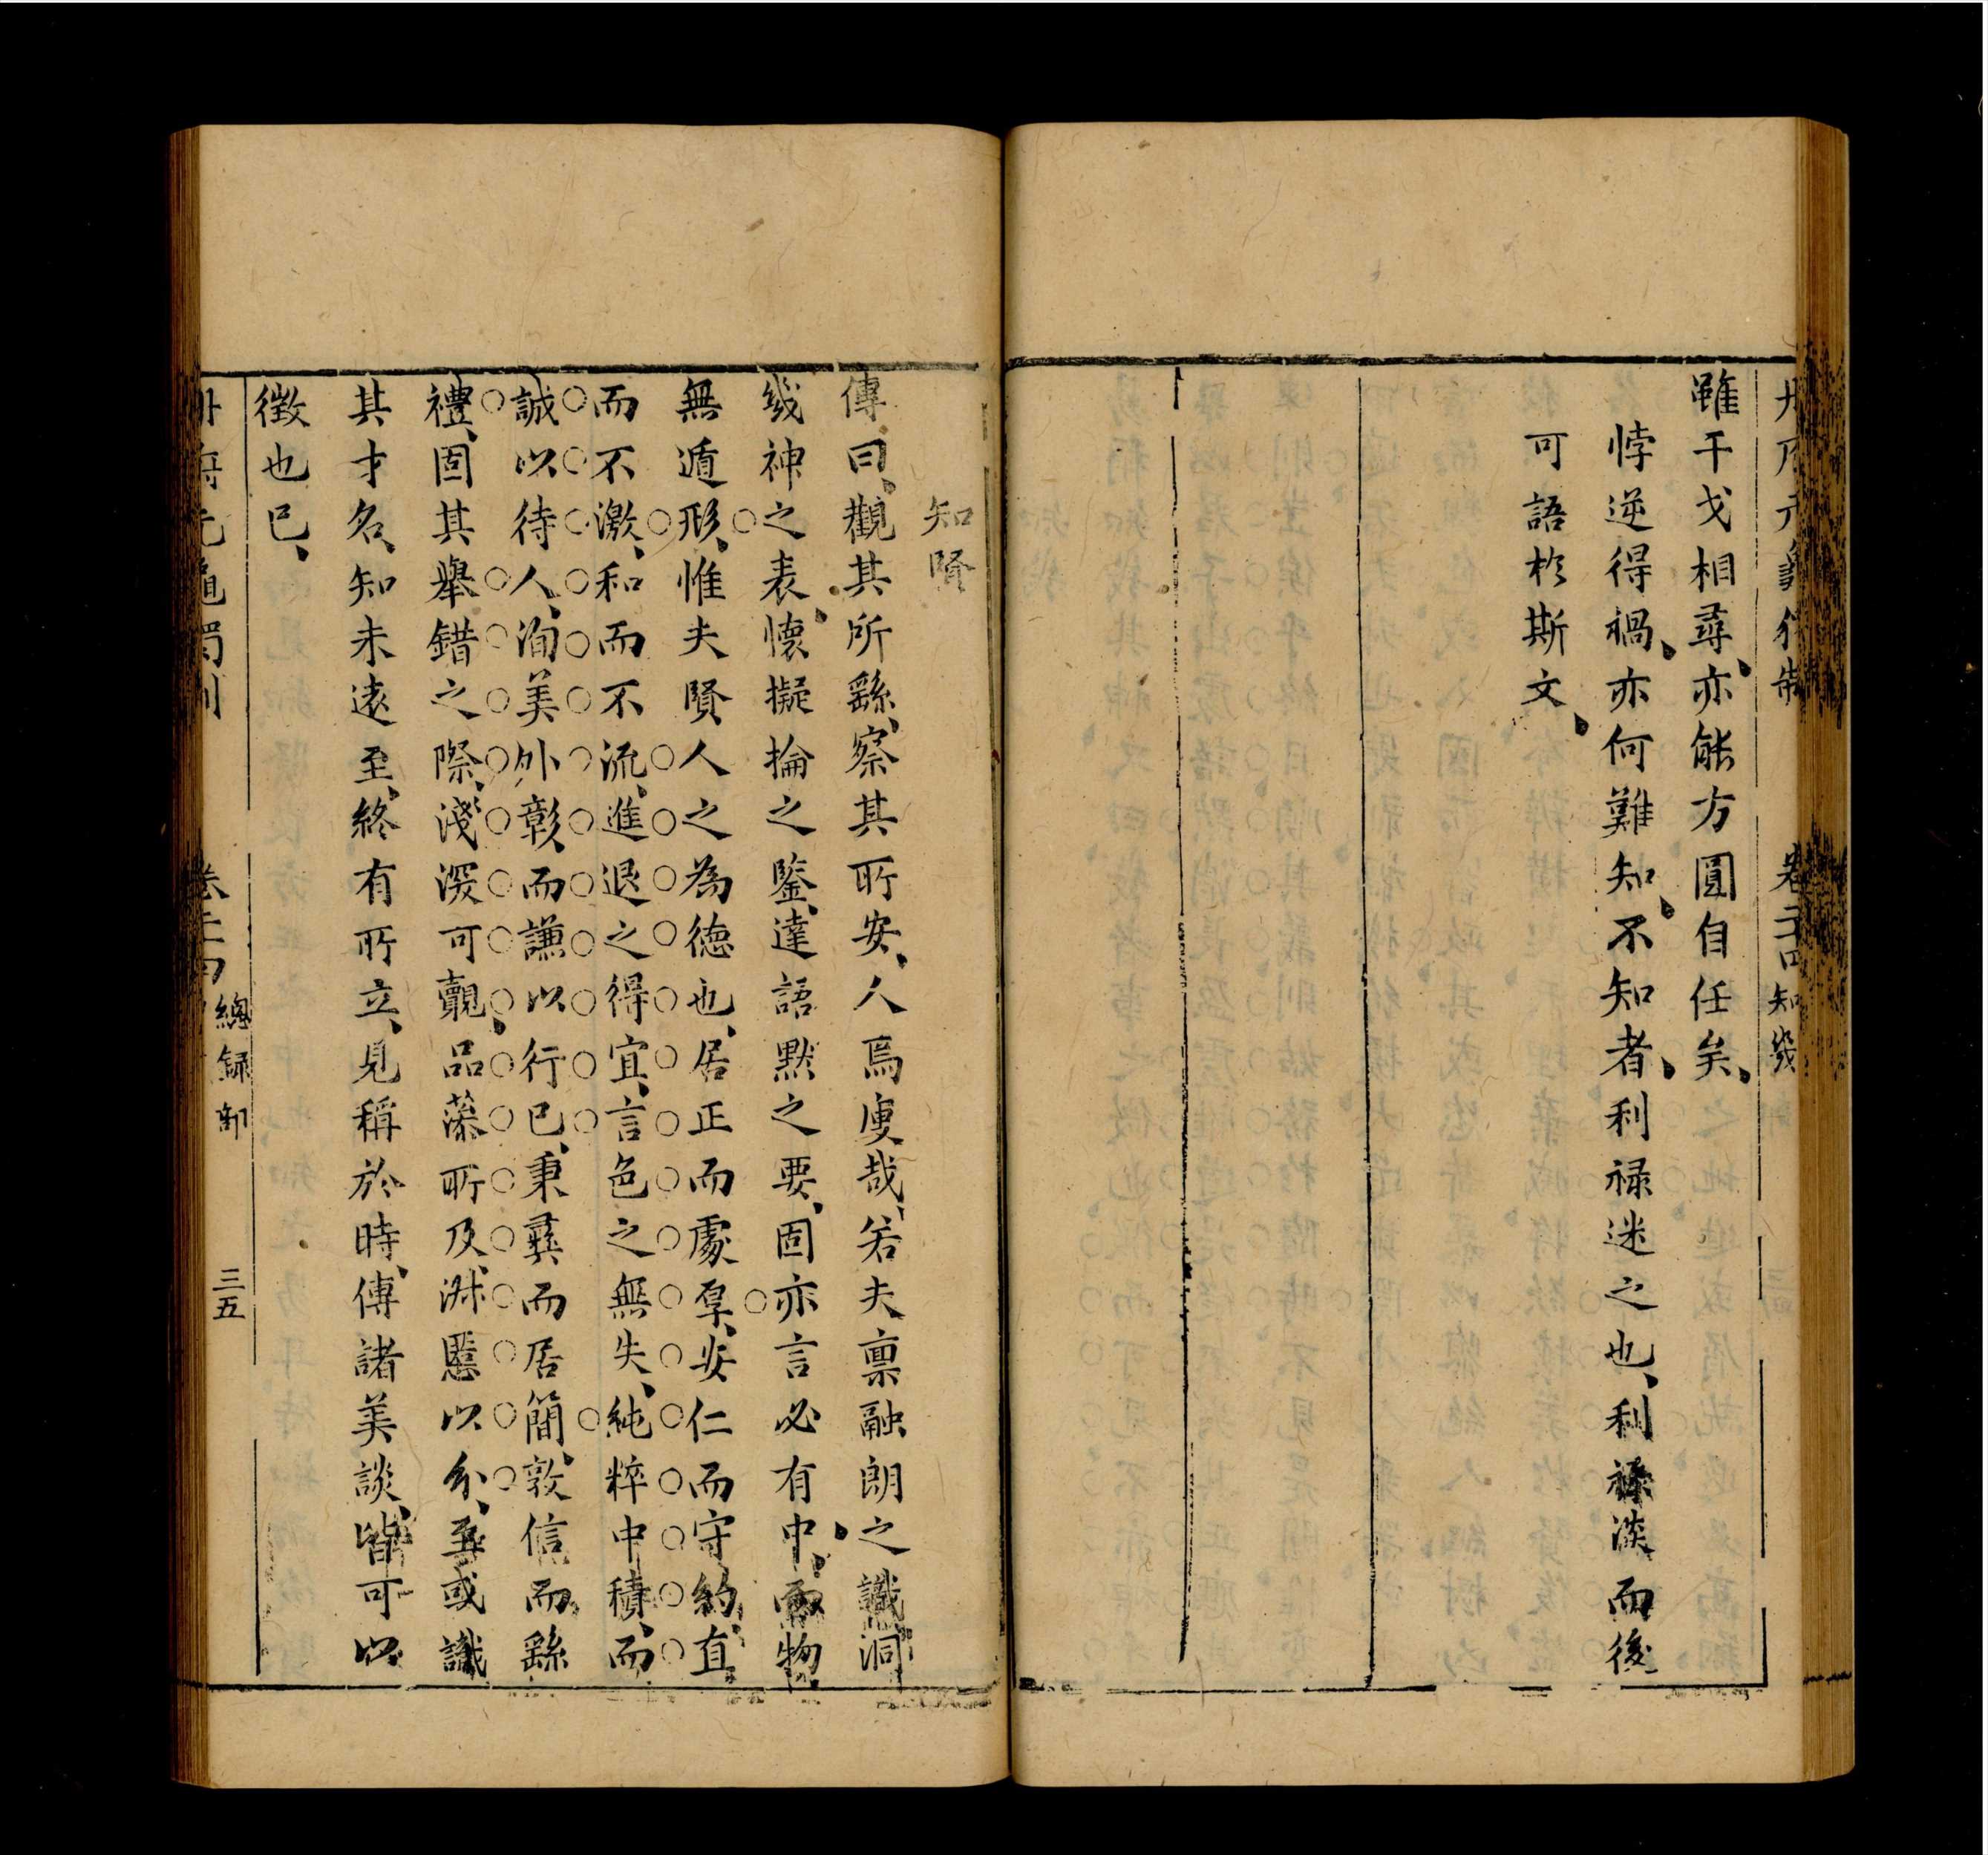 卷二十四 知幾
雖干戈相尋亦能方圓自任矣
悖逆得禍亦何難知不知者利祿迷之也利祿淡而後
可語於斯文
知賢
傳曰觀其所繇察其所安人焉廋哉若夫稟融朗之識洞
幾神之表懷擬掄之鑒達語默之要固亦言必有中而物
無遁形惟夫賢人之為德也居正而處厚安仁而守約直
而不激和而不流進退之得宜言色之無失純粹中積而
誠以待人洵美外彰而謙以行已秉彞而居簡敦信而繇
禮固其舉錯之際淺深可覿品藻所及淋慝以分至或識
其才名知未遠至終有所立見稱於時傳諸美談皆可以
徵也已
冊府元龜獨制 卷二十四 總錄部 三五